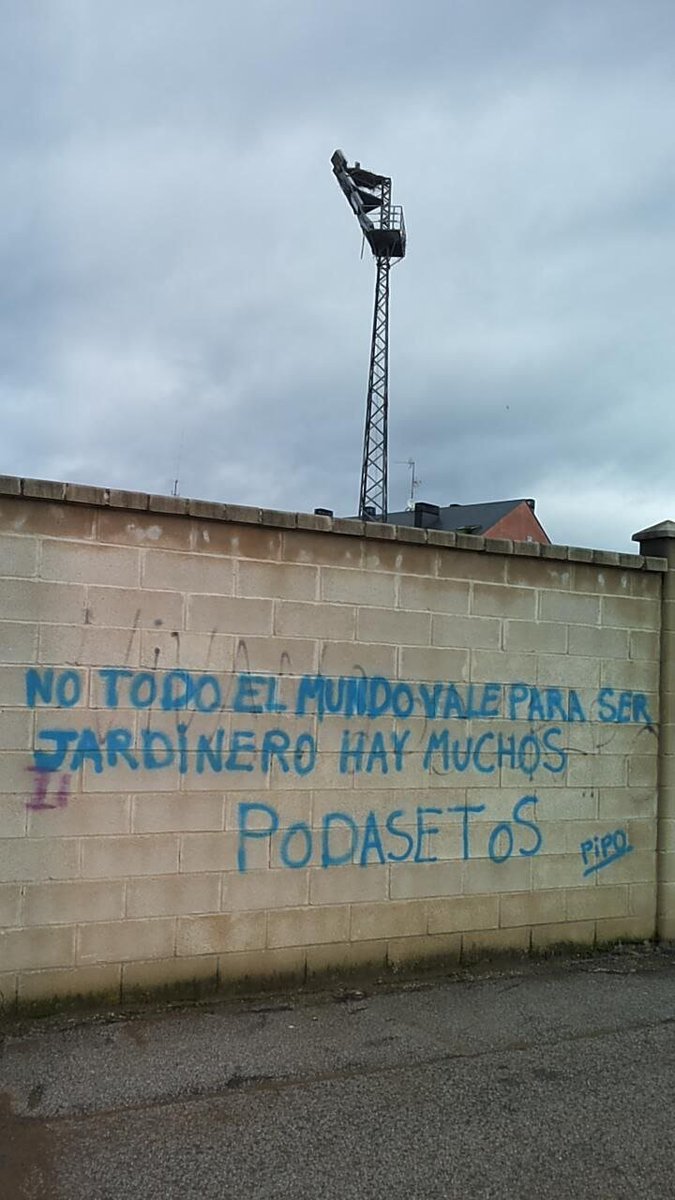 NO TODO EL MUNDO VALE PARA SER
JARDINERO HAY MUCHOS
PODASETOS
PIPO